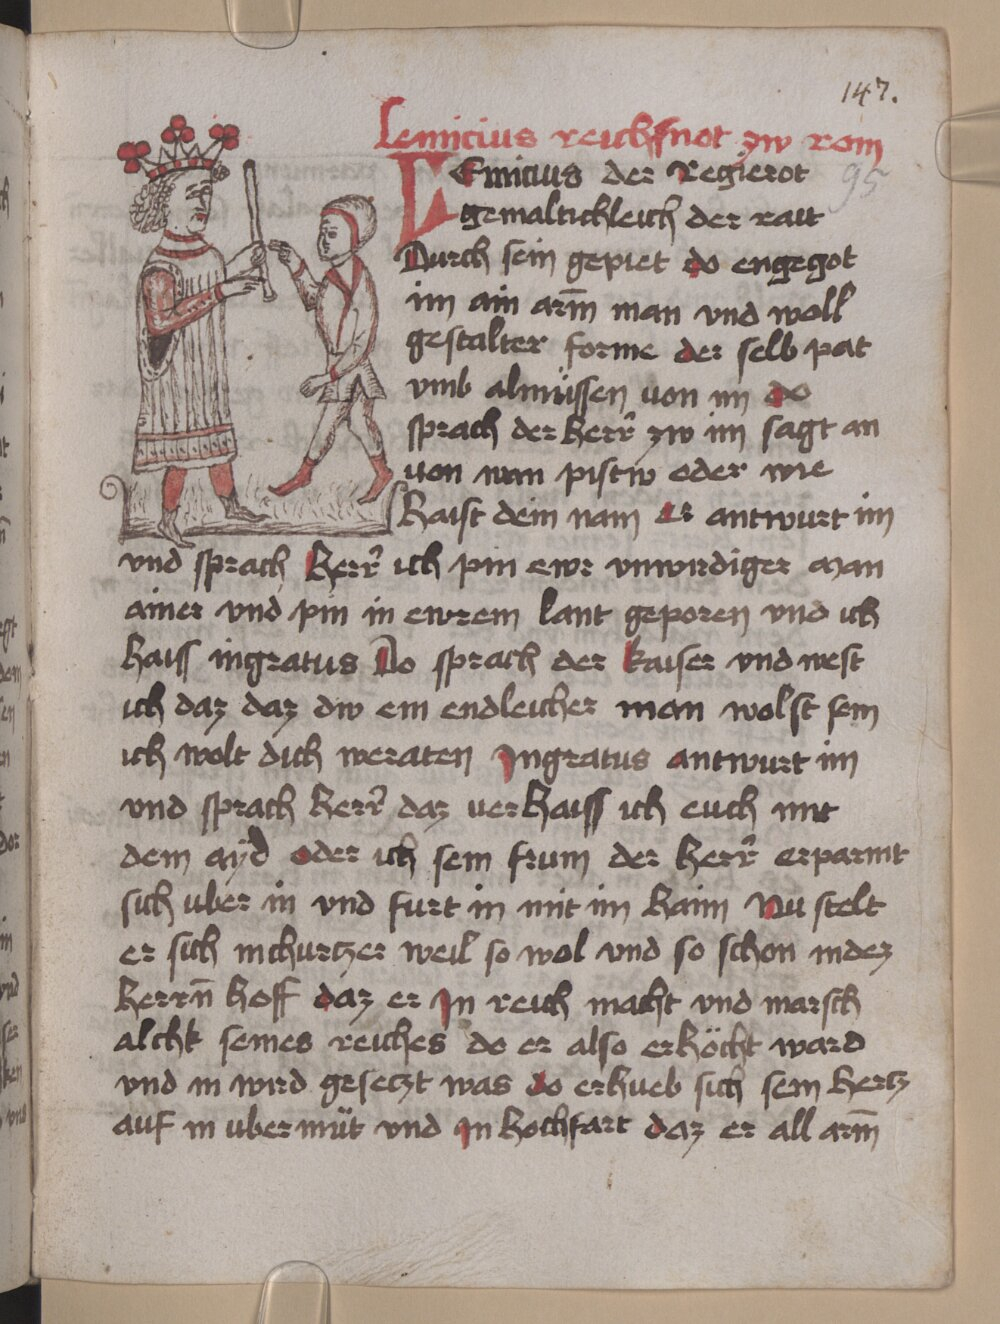 147.
Lenticius reichsnot zw rom
95
LEnticius der Regierot
gewaltichleich der rait
Durch sein gepiet do engegot
im ain arm̄ man vnd woll
gestalter forme der selb pat
vmb almüssen von im do
sprach der herr̄ zw im sagt an
von wan pistw oder wie
haist dein nam er antwurt im
vnd sprach herr̄ ich pin ewr vnwirdiger man
ainer vnd pin in ewrem lant geporen vnd ich
haiss ingratus Do sprach der kaiser vnd west
ich daz daz dw ein endleicher man wolst sein
ich wolt dich weraten Ingratus antwurt im
vnd sprach herr̄ daz verhaiss ich euch mit
dem aÿd oder ich sein frum der herr̄ erparmt
sich vber in vnd furt in mit im haim Nu stelt
er sich inchurtzer weil so wol vnd so schon indez
herrn̄ hoff daz er In reich macht vnd marsch
alchk seines reiches do er also erhöcht ward
vnd in wird gesetzt was do erhueb sich sein hertz
auf in vbermüt vnd In hochfart daz er all arm̄